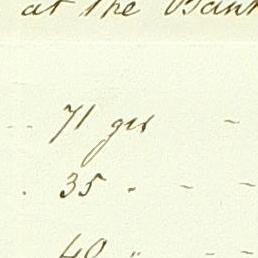 at the Bank
- - 71 grs -
. 35 " - -
40 " - -